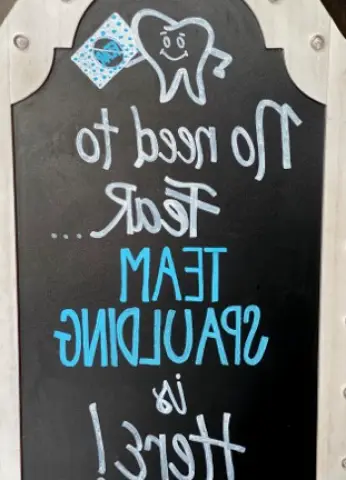 No need to
Fear...
TEAM
SPAULDING
is
Here!